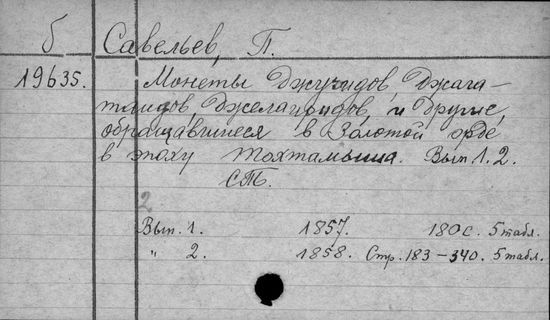 б Савельев, П.
19635. Монеты Джучидов, Джага-
таидов, Джелаиридов, и другие,
обращавшиеся в Золотой орде
в эпоху Тохтамыша. Вып 1. 2.
СПб.
2
Вып. 1. 1857. 180 с. 5 табл.
" 2. 1858. Стр. 183-340. 5 табл.